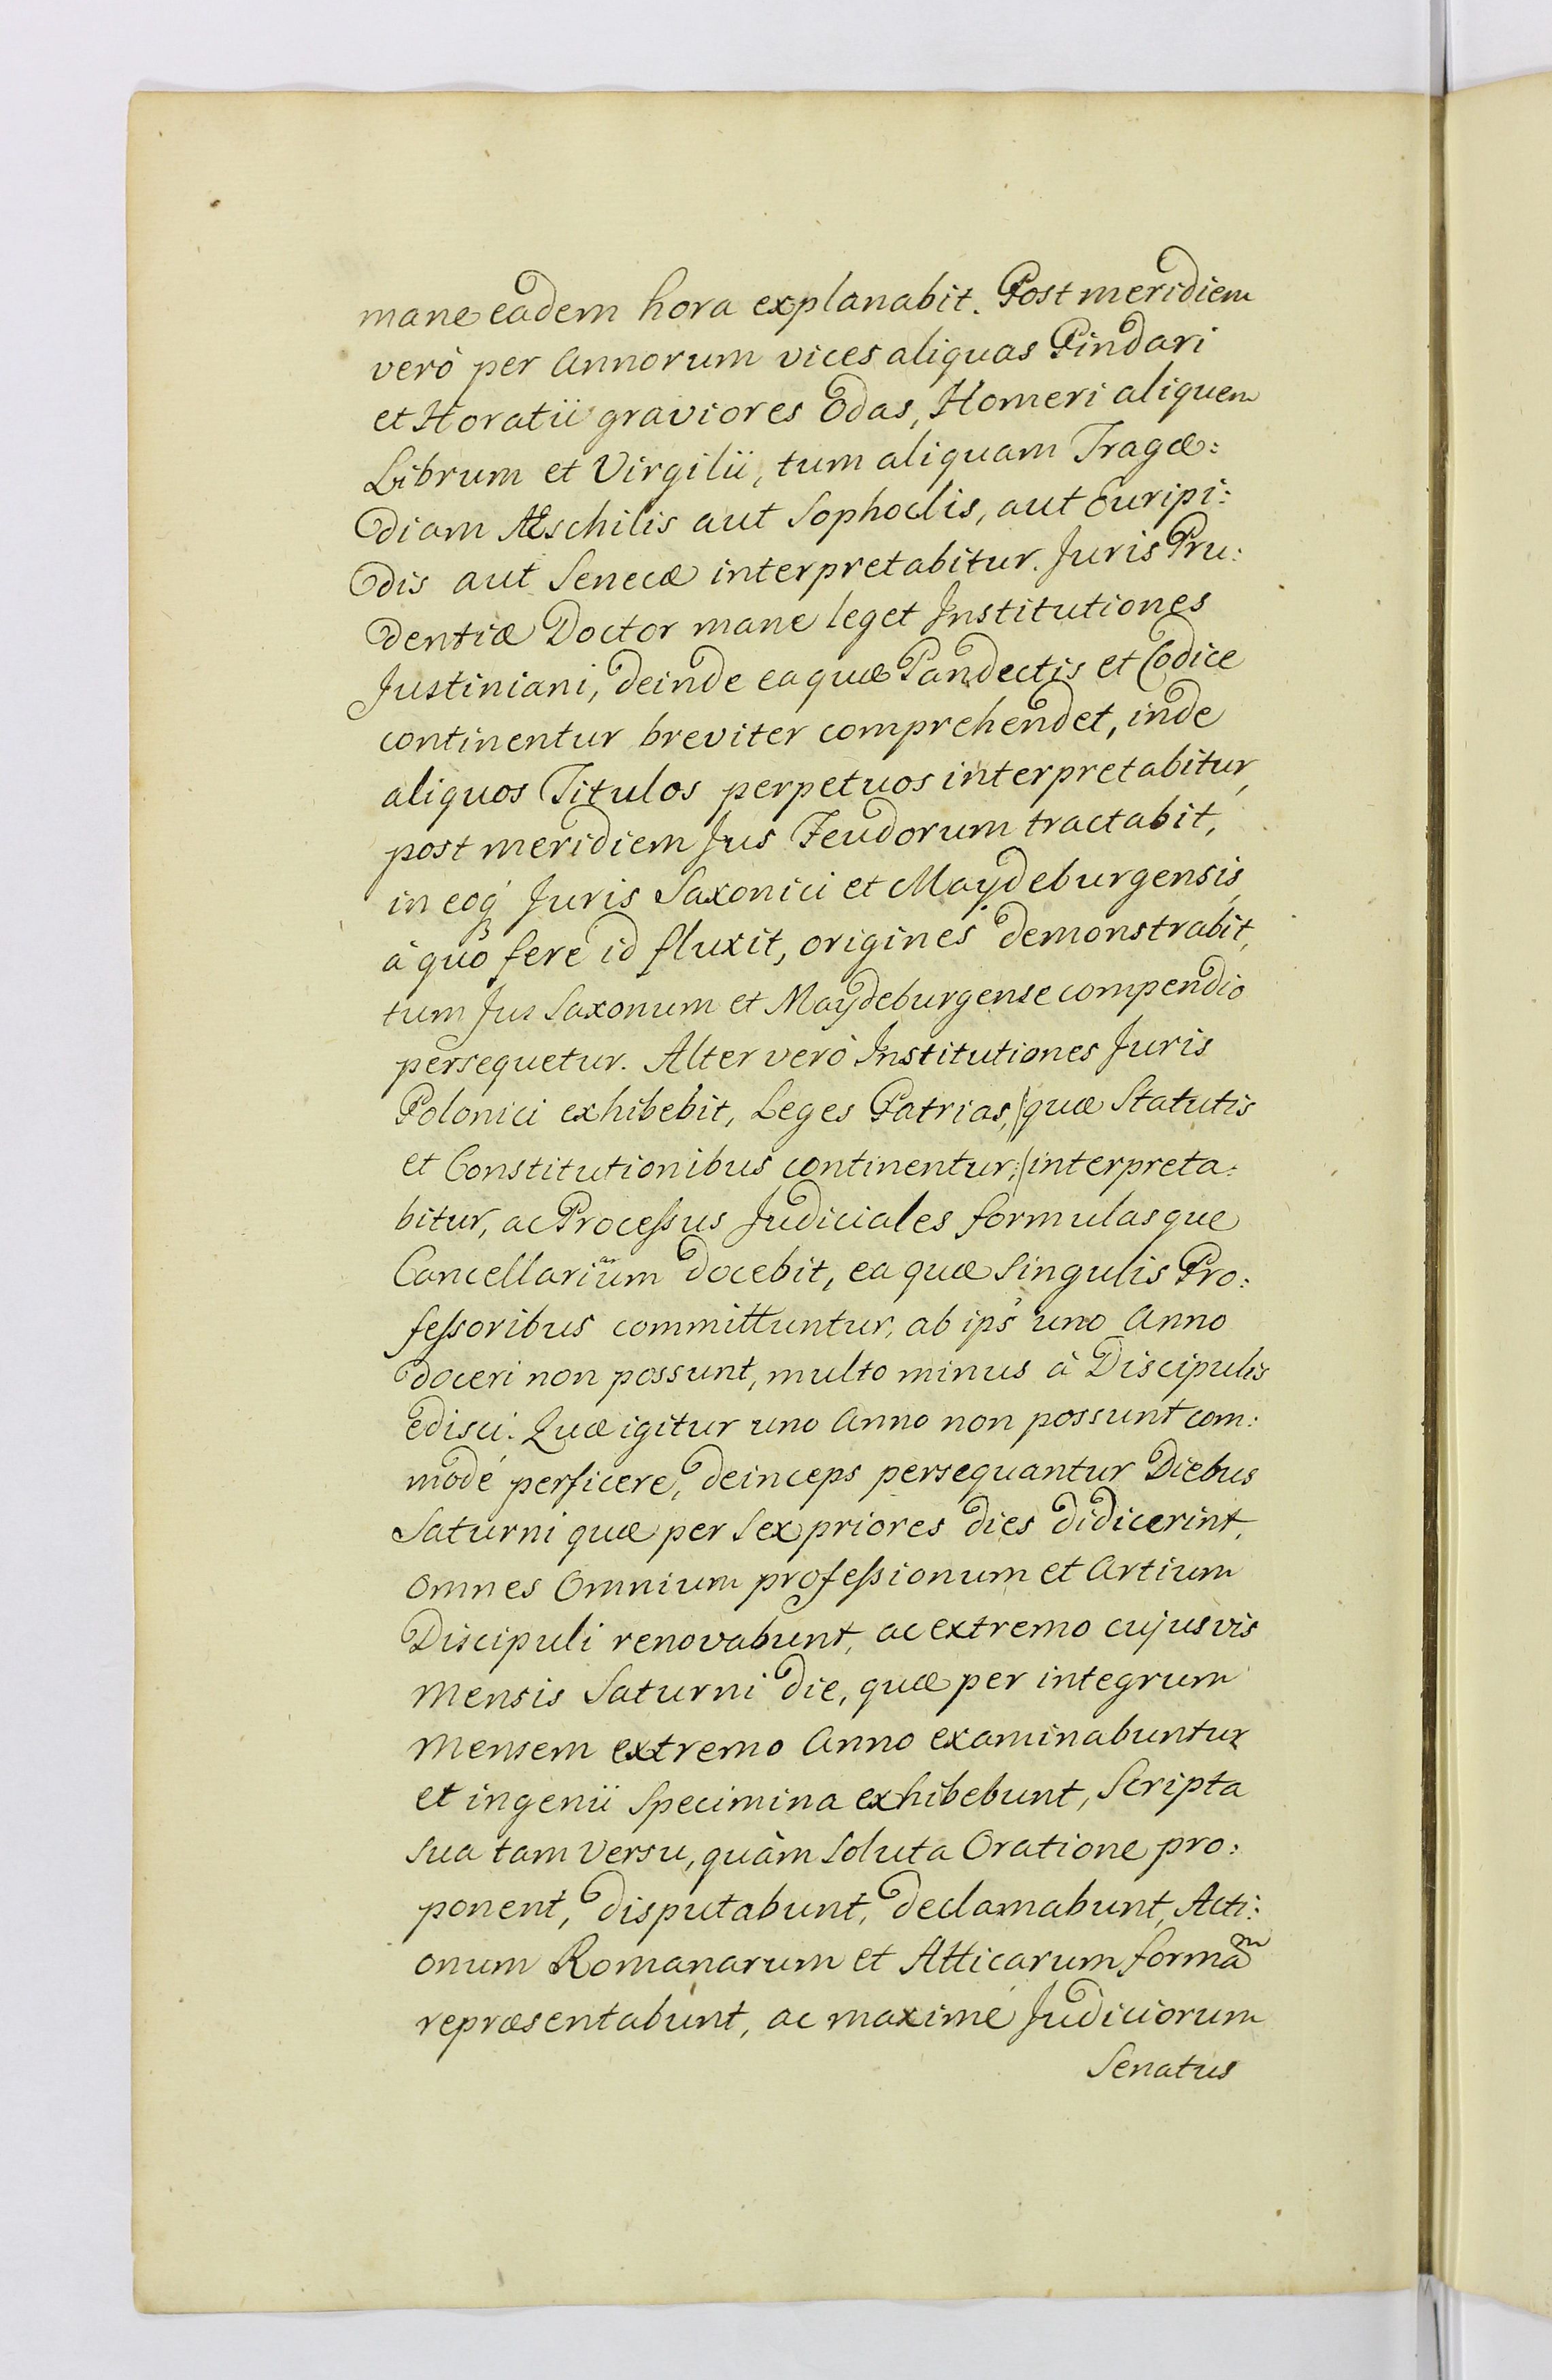 mane eadem hora explanabit. Post meridiem
verò per Annorum vices aliquas Pindari
et Horatii graviores Odas, Homeri aliquem
Librum et Virgilii, tum aliquam Tragæ:
diam Æschilis aut Sophoclis, aut Euripi:
dis aut Senecæ interpretabitur. Juris Pru:
dentiæ Doctor mane leget Institutiones
Justiniani, deinde ea quæ Pandectis et Codice
continentur breviter comprehendet, inde
aliquos Titulos perpetuos interpretabitur,
post meridiem Jus Feudorum tractabit,
in eoq́ꝫ Juris Saxonici et Maÿdeburgensis,
à quo fere id fluxit, origines demonstrabit,
tum Jus Saxonum et Maÿdeburgense compendio
persequetur. Alter verò Institutiones Juris
Polonici exhibebit, Leges Patrias, /quæ Statutis
et Constitutionibus continentur;/ interpreta:
bitur, ac Processus Judiciales formulasque
Cancellariarum docebit, ea quæ singulis Pro:
fessoribus committuntur, ab ips' uno Anno
doceri non possunt, multo minus à Discipulis
edisci. Quæ igitur uno Anno non possunt com:
modé perficere, deinceps persequantur Diebus
Saturni quæ per sex priores dies didicerint,
omnes Omnium professionum et Artium
Discipuli renovabunt, ac extremo cujusvis
Mensis Saturni die, quæ per integrum
Mensem extremo Anno examinabuntur
et ingenii Specimina exhibebunt, Scripta
sua tam Versu, quàm soluta Oratione pro:
ponent, disputabunt, declamabunt, Acti:
onum Romanarum et Atticarum formam
repræsentabunt, ac maximé Judiciorum
Senatus